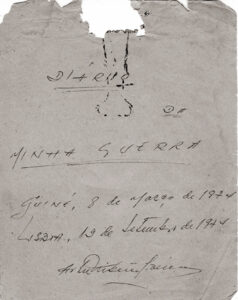 DIÁRIO
DA
MINHA GUERRA
GUINÉ, 8 de MARÇO de 1974
LISBOA, 12 de Setembro de 1974